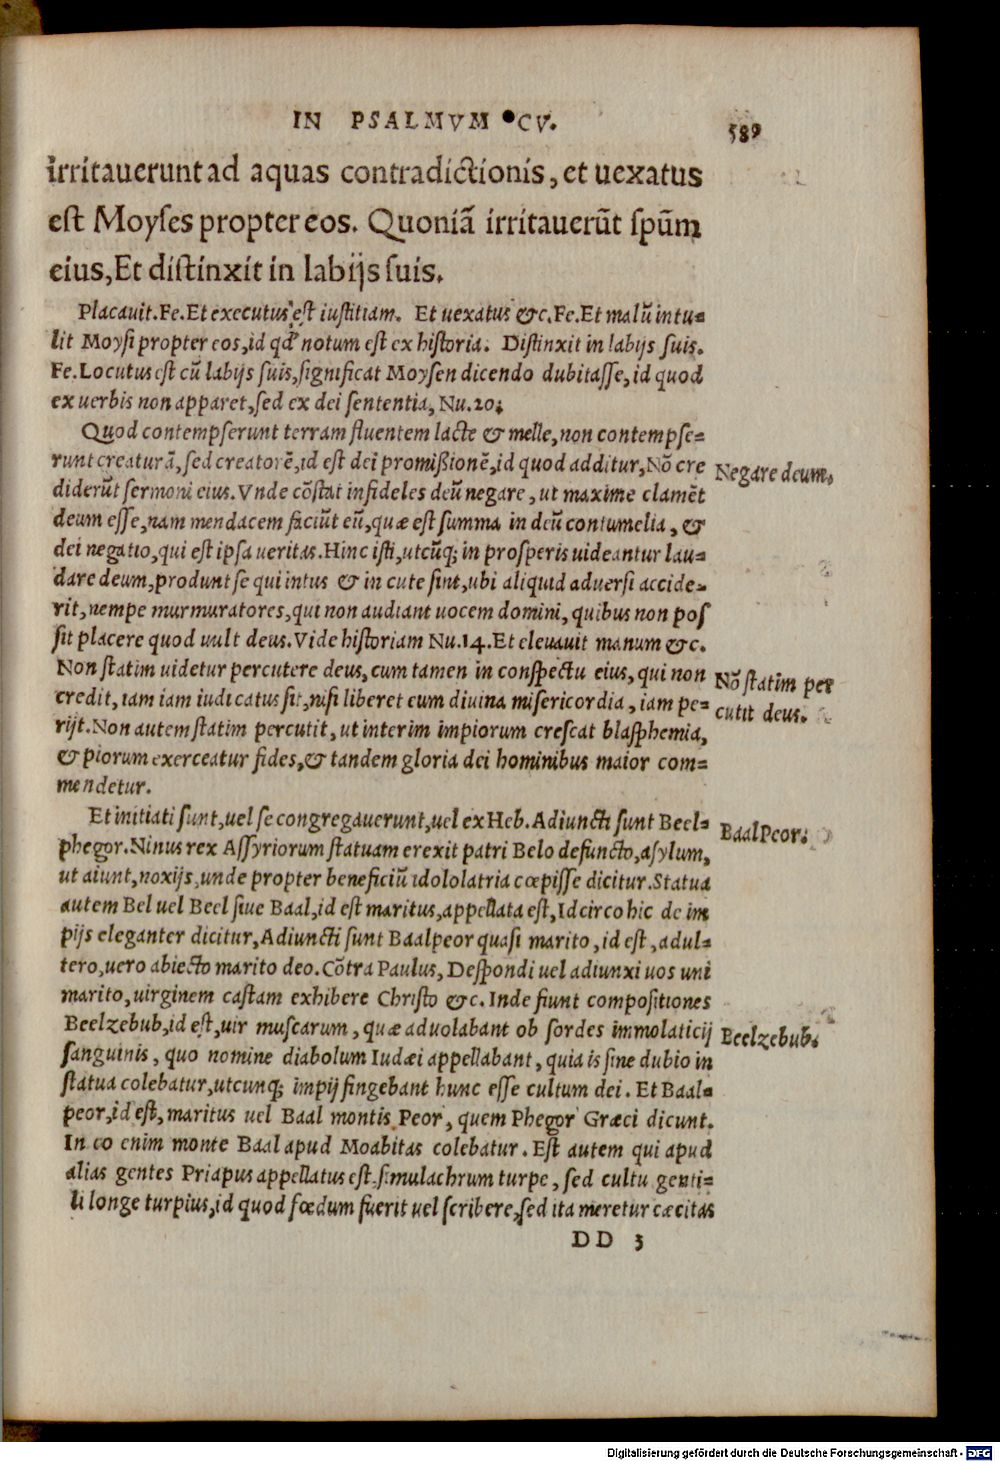 IN PSALMVM CV.
589
irritauerunt ad aquas contradictionis, et uexatus
est Moyses propter eos. Quoniã irritauerũt spũm
eius, Et distinxit in labijs suis.
Placauit. Fe. Et executus est iustitiam. Et uexatus &c. Fe. Et malũ intu=
lit Moysi propter eos, id qđ notum est ex historia. Distinxit in labijs suis.
Fe. Locutus est cũ labijs suis, significat Moysen dicendo dubitasse, id quod
ex uerbis non apparet, sed ex dei sententia, Nu. 20.
Quod contempserunt terram fluentem lacte & melle, non contempse=
runt creaturã, sed creatorẽ, id est dei promißionẽ, id quod additur, Nõ cre
diderũt sermoni eius. Vnde cõstat infideles deũ negare, ut maxime clamẽt
deum esse, nam mendacem faciũt eũ, quæ est summa in deũ contumelia, &
dei negatio, qui est ipsa ueritas. Hinc isti, utcũq; in prosperis uideantur lau=
dare deum, produnt se qui intus & in cute sint, ubi aliquid aduersi accide=
rit, nempe murmuratores, qui non audiant uocem domini, quibus non pos
sit placere quod uult deus. Vide historiam Nu. 14. Et eleuauit manum &c.
Non statim uidetur percutere deus, cum tamen in conspectu eius, qui non
credit, iam iam iudicatus sit, nisi liberet eum diuina misericordia, iam pe=
rijt. Non autem statim percutit, ut interim impiorum crescat blasphemia,
& piorum exerceatur fides, & tandem gloria dei hominibus maior com=
mendetur.
Et initiati sunt, uel se congregauerunt, uel ex Heb. Adiuncti sunt Beel=
phegor. Ninus rex Assyriorum statuam erexit patri Belo defuncto, asylum,
ut aiunt, noxijs, unde propter beneficiũ idololatria cœpisse dicitur. Statua
autem Bel uel Beel siue Baal, id est maritus, appellata est, Idcirco hic de im
pijs eleganter dicitur, Adiuncti sunt Baalpeor quasi marito, id est, adul=
tero, uero abiecto marito deo. Cõtra Paulus, Despondi uel adiunxi uos uni
marito, uirginem castam exhibere Christo &c. Inde fiunt compositiones
Beelzebub, id est, uir muscarum, quæ aduolabant ob sordes immolaticij
sanguinis, quo nomine diabolum Iudæi appellabant, quia is sine dubio in
statua colebatur, utcunq; impij fingebant hunc esse cultum dei. Et Baal=
peor, id est, maritus uel Baal montis Peor, quem Phegor Græci dicunt.
In eo enim monte Baal apud Moabitas colebatur. Est autem qui apud
alias gentes Priapus appellatus est, simulachrum turpe, sed cultu genti=
li longe turpius, id quod fœdum fuerit uel scribere, sed ita meretur cæcitas
DD 3
Negare deum.
Nõ statim per
cutit deus.
Baal Peor.
Beelzebub.
Digitalisierung gefördert durch die Deutsche Forschungsgemeinschaft - DFG